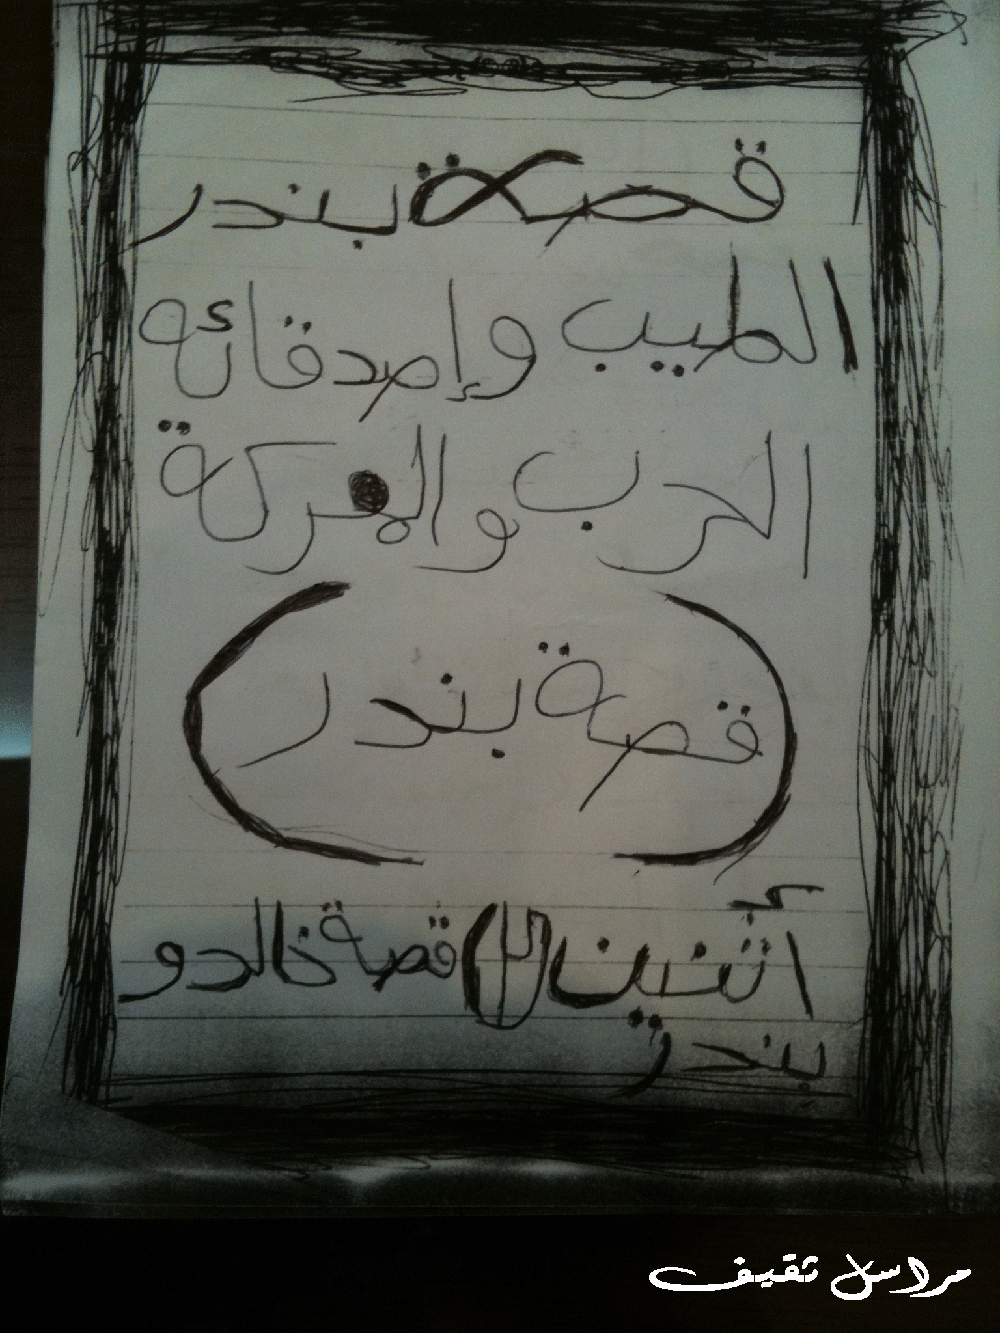 قصة بندر
الطيب وإصدقائه
الحرب والمعركة
(قصة بندر)
أثنين (٢) قصة خالد و
بندر
مراسل ثقيف